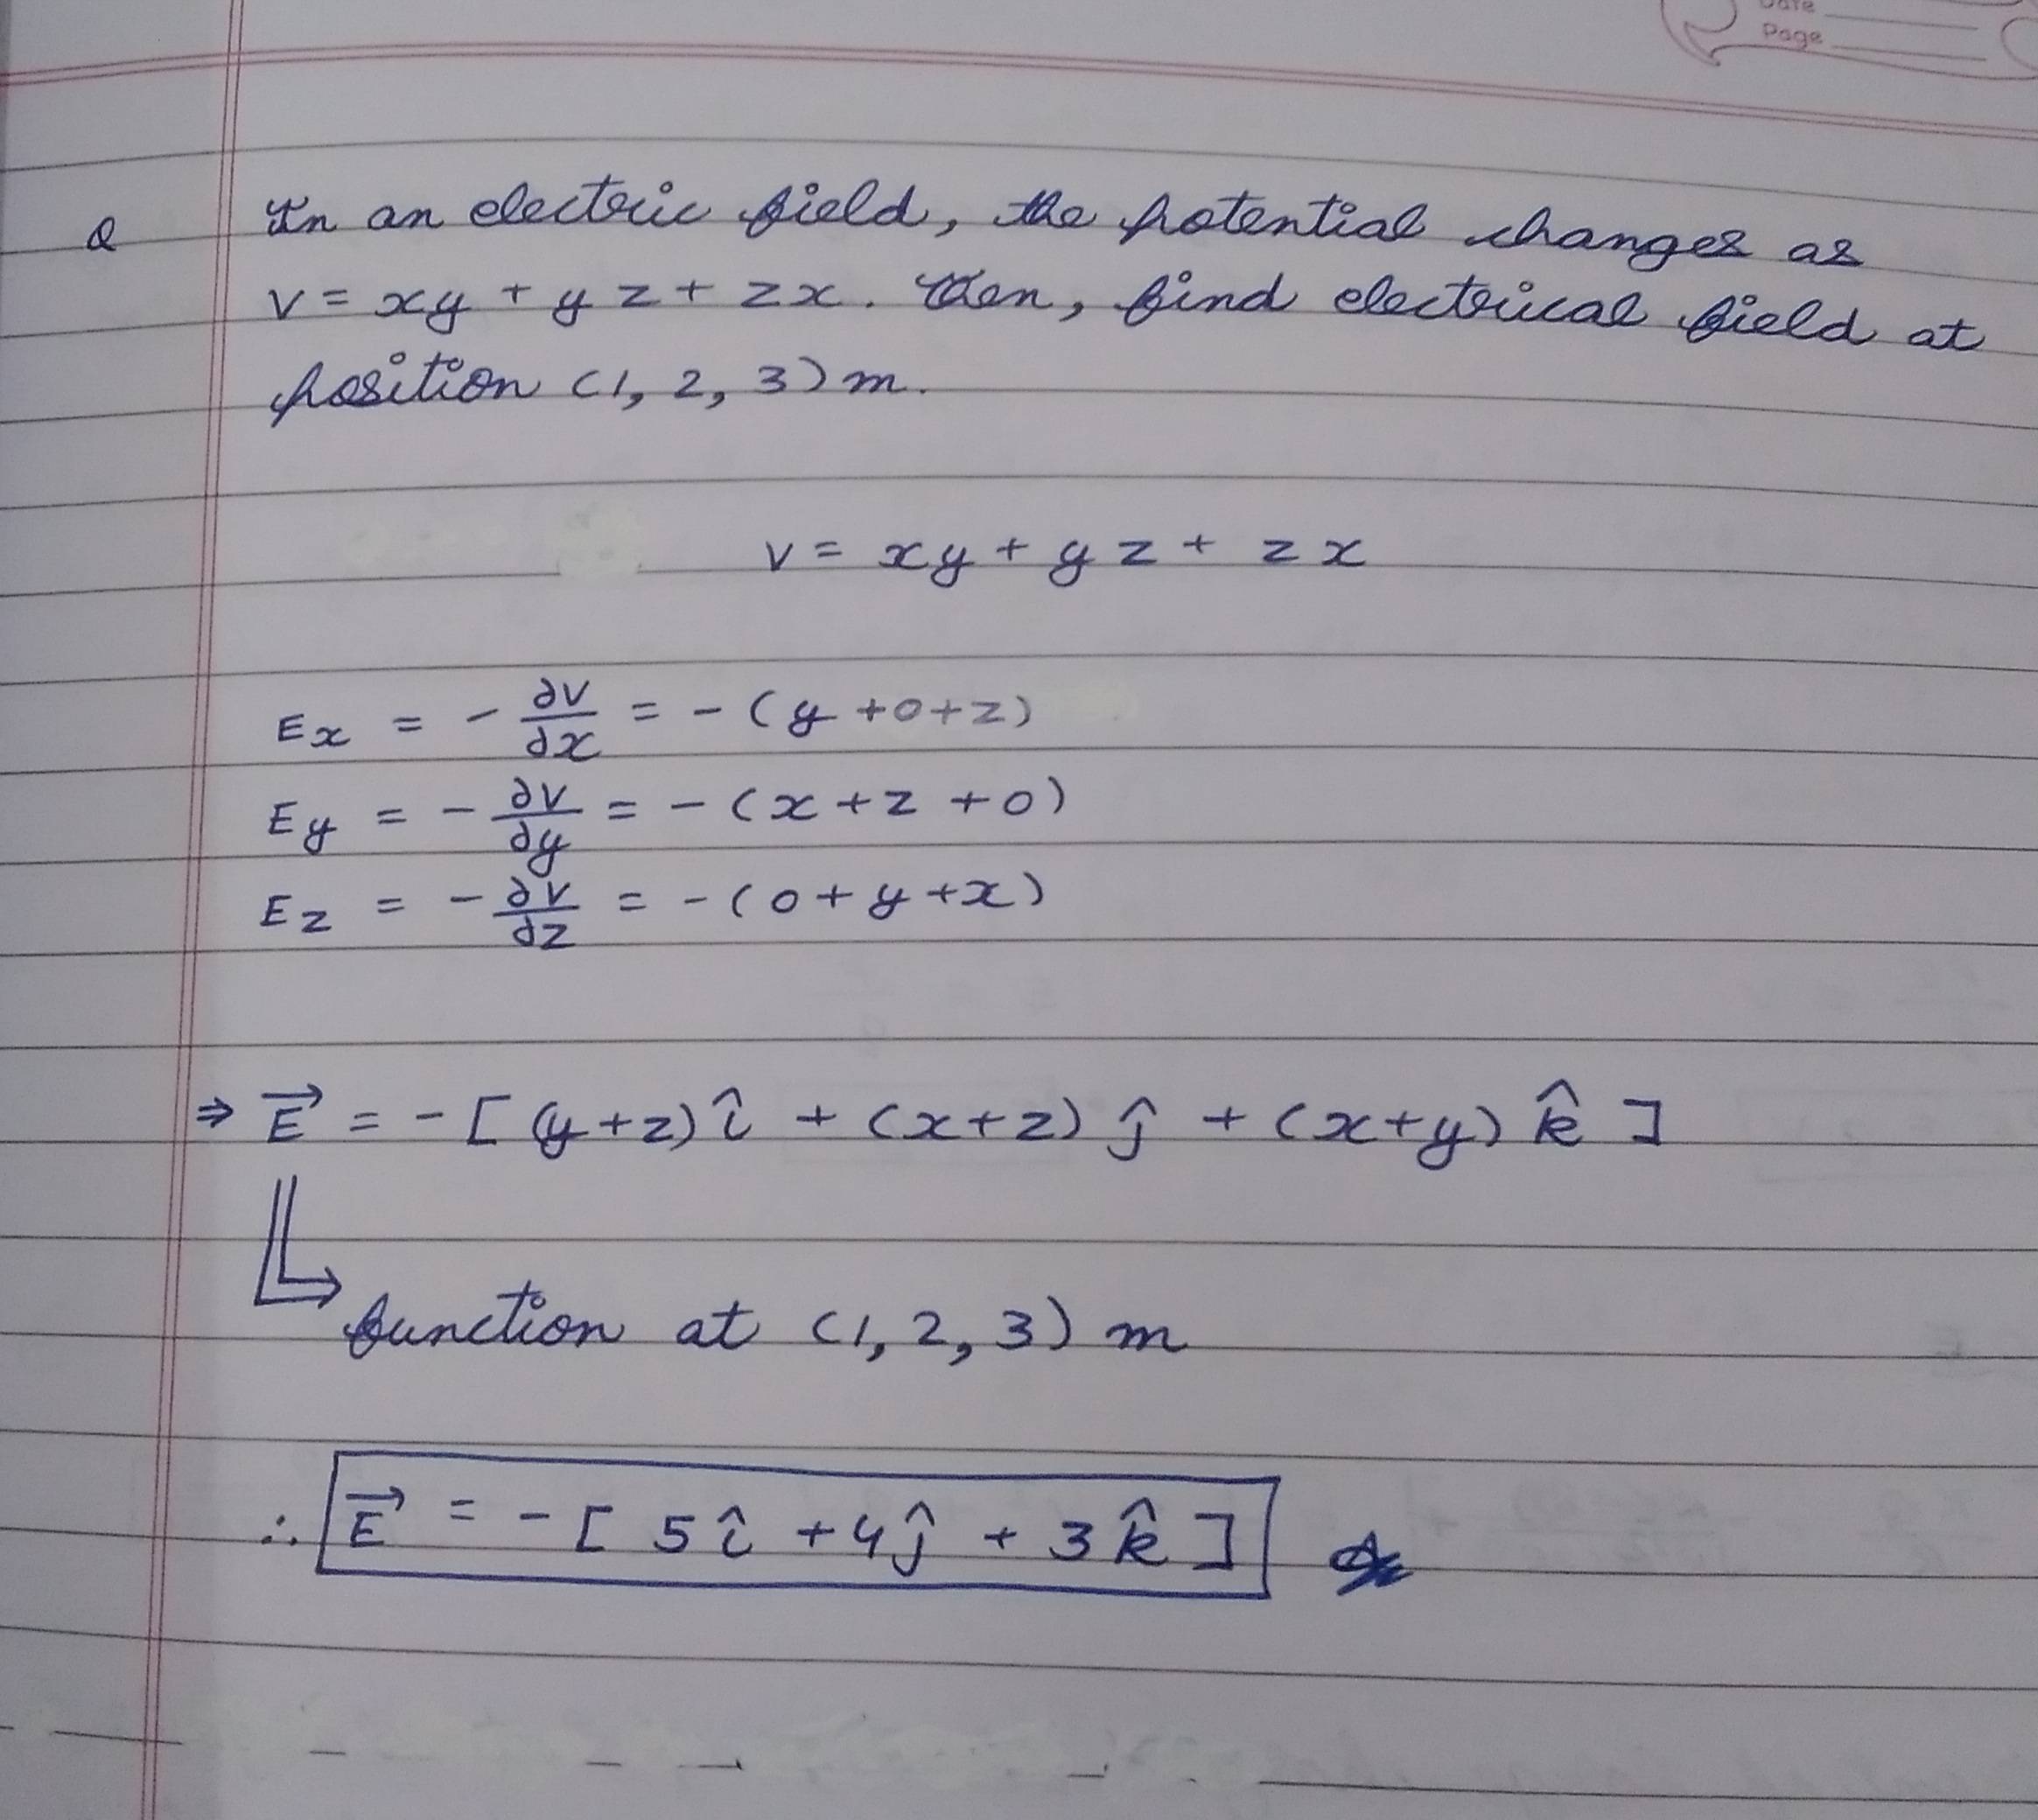 Date
Page
Q In an electric field, the potential changes as
V = xy + yz + zx. Then, find electrical field at
position (1, 2, 3) m.
V = xy + yz + zx
Ex = - ∂V/∂x = - (y + 0 + z)
Ey = - ∂V/∂y = - (x + z + 0)
Ez = - ∂V/∂z = - (0 + y + x)
⇒ E⃗ = - [ (y+z) î + (x+z) ĵ + (x+y) k̂ ]
function at (1, 2, 3) m
∴ E⃗ = - [ 5 î + 4 ĵ + 3 k̂ ]